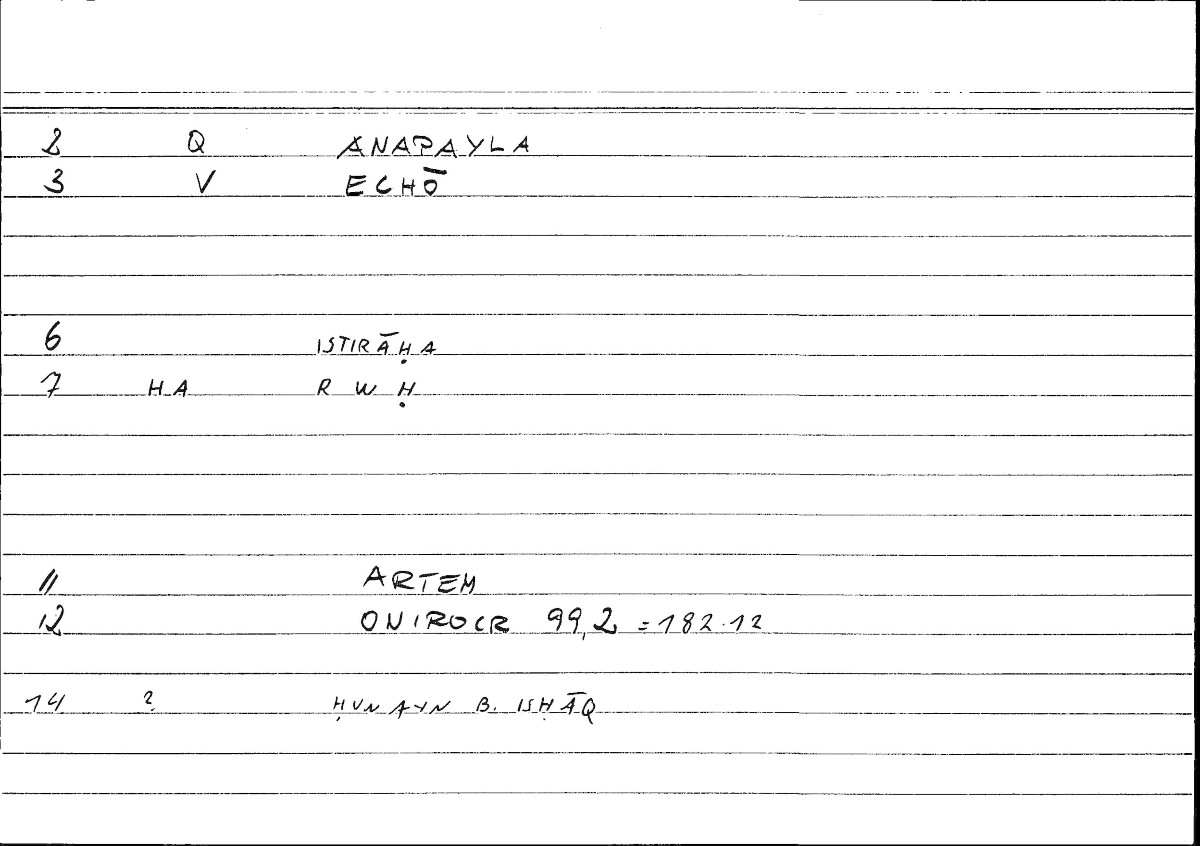 2 Q ANAPAYLA
3 V ECHŌ
6 ISTIRĀḤA
7 HA R W Ḥ
11 ARTEM
12 ONIROCR 99,2 = 182.12
14 ? ḤUNAYN B. ISḤĀQ